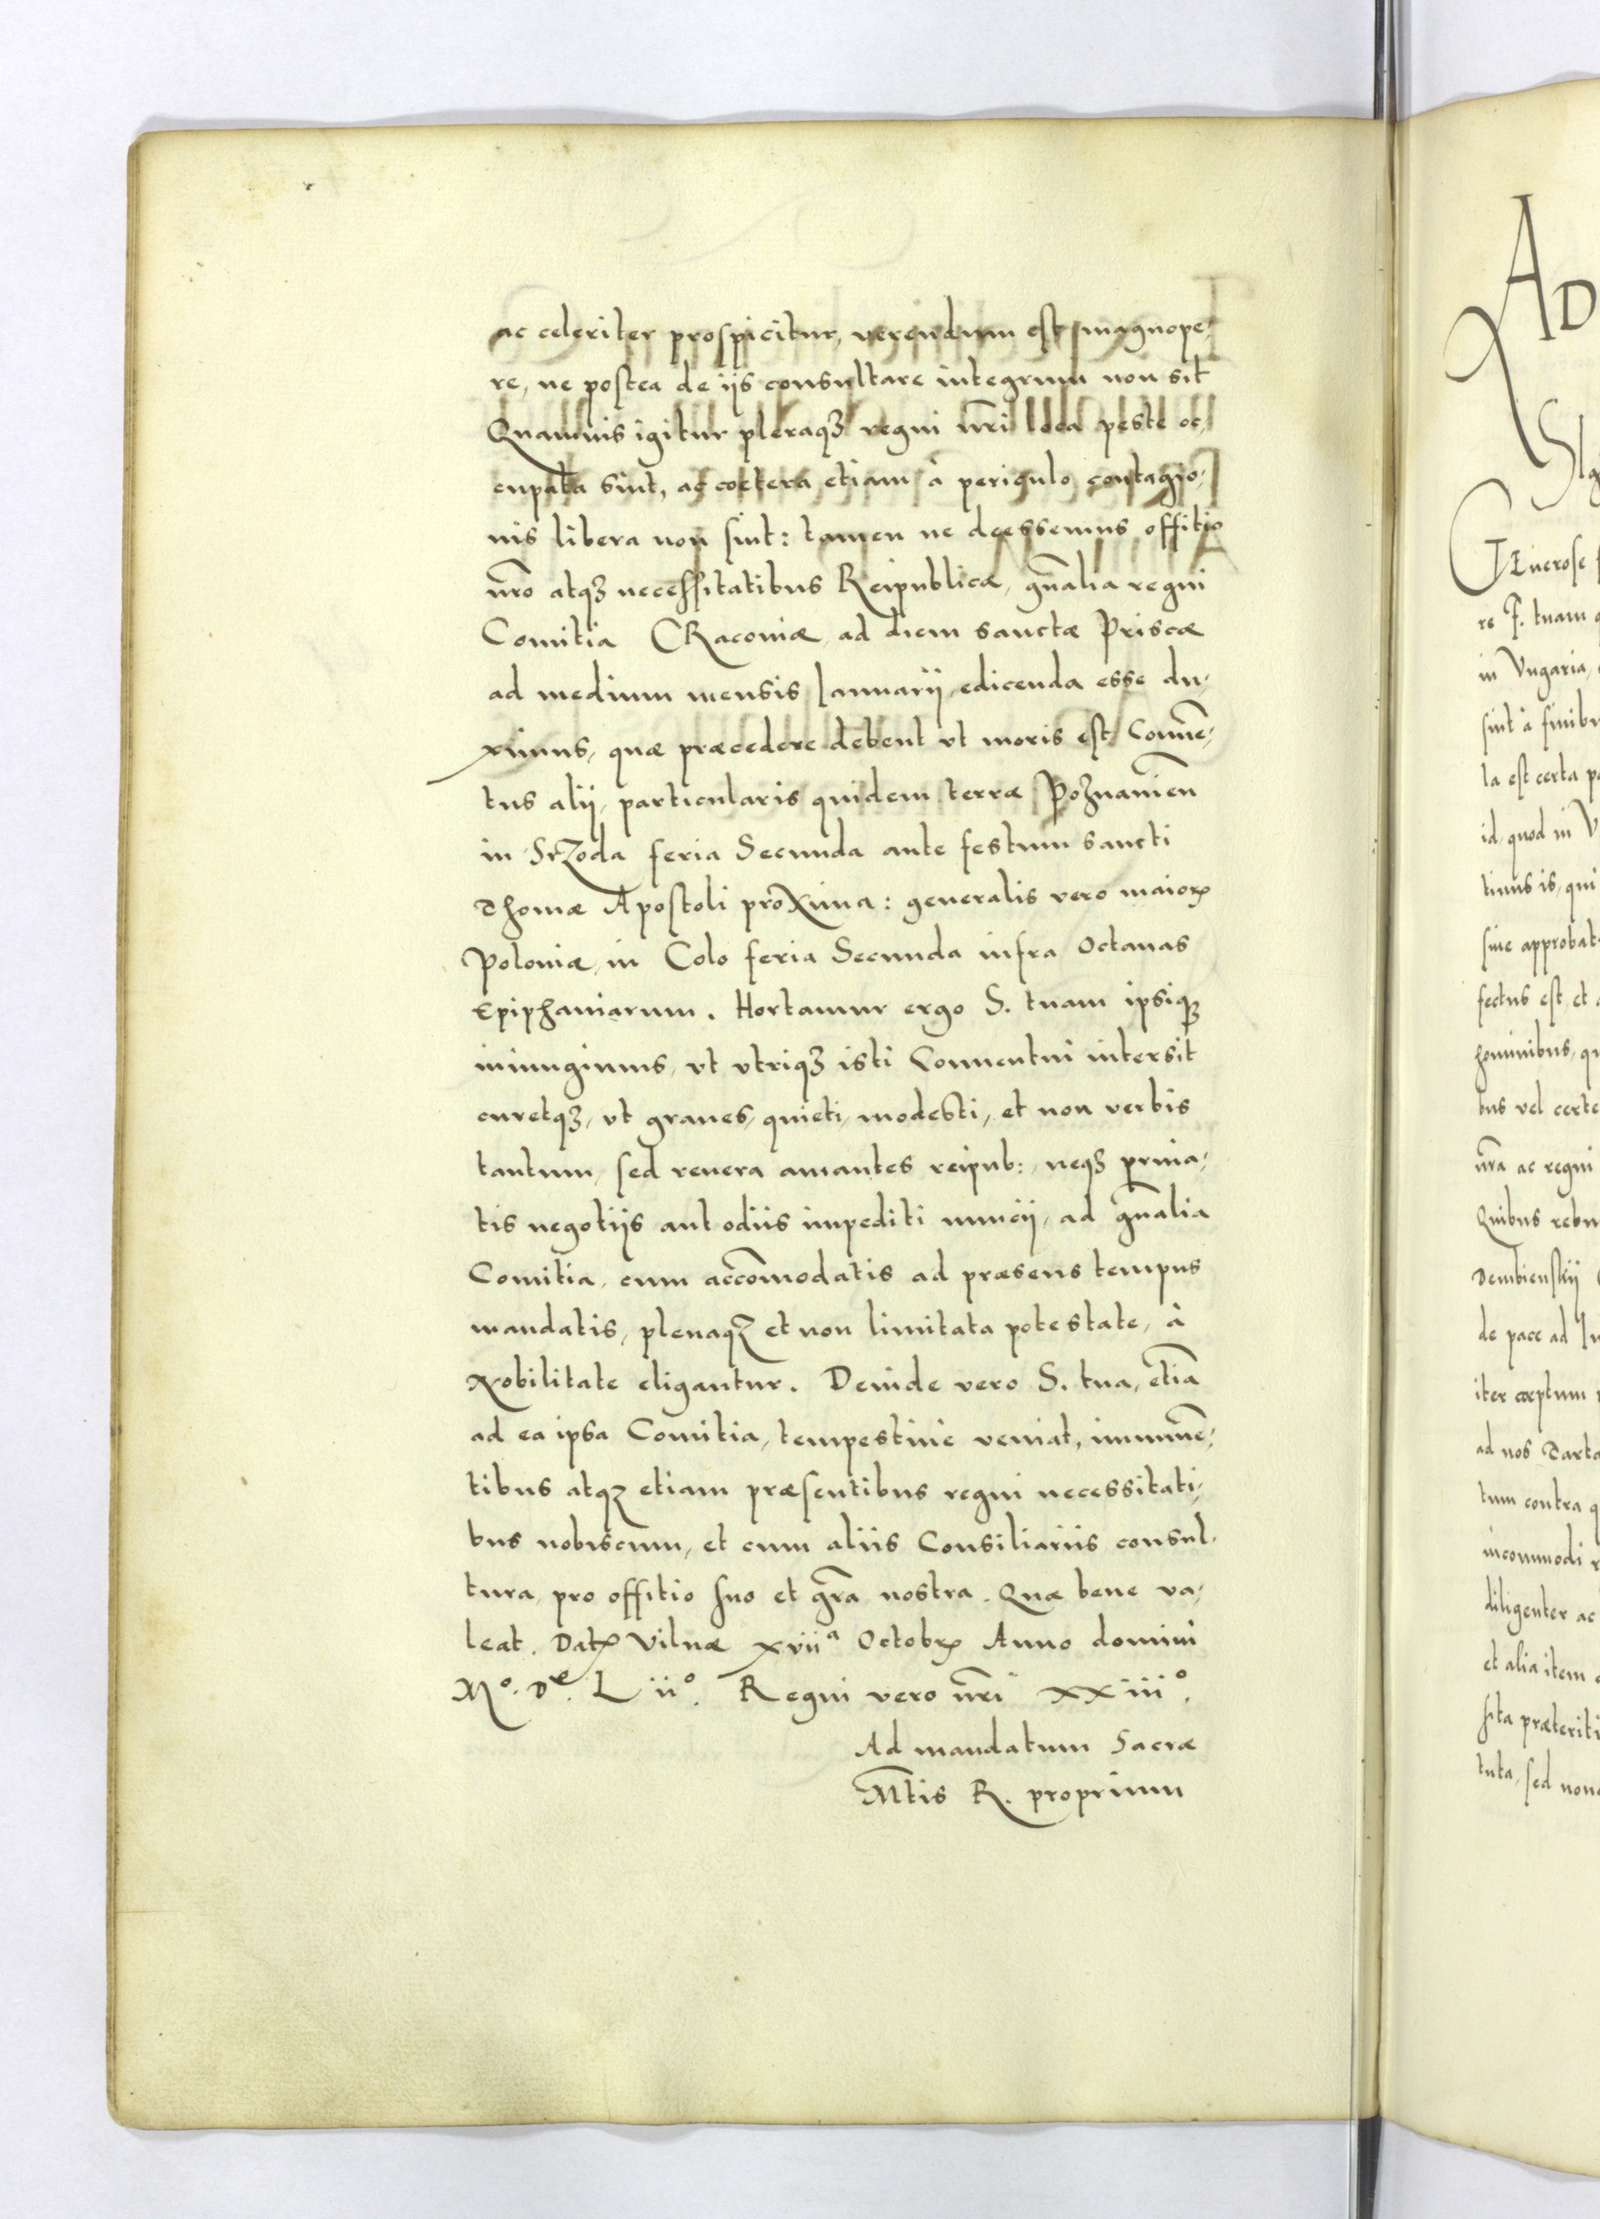 ac celeriter prospicitur, verendum est magnope-
re, ne postea de iis consultare integrum non sit
Quamuis igitur pleraqȝ regni nr̃i loca peste oc-
cupata sint, ac coetera etiam à periculo contagio-
nis libera non sint: tamen ne deessemus offitio
nr̃o atqȝ necessitatibus Reipublicæ, gñalia regni
Comitia CRacoviæ ad diem sanctæ Priscæ
ad medium mensis Ianuarij edicenda esse du-
ximus, quæ præcedere debent vt moris est Conuẽ-
tus alij, particularis quidem terræ Poznanieñ
in Srzoda feria Secunda ante festum sancti
Thomæ Apostoli proxima: generalis vero maioꝝ
Poloniæ, in Colo feria Secunda infra Octauas
Epiphaniarum. Hortamur ergo S. tuam ipsiqȝ
iniungimus, vt vtriqȝ isti Conuentui intersit
curetqȝ, vt graues, quieti, modesti, et non verbis
tantum, sed reuera amantes reipub:, neqȝ priua-
tis negotijs aut odiis impediti nuncij, ad gñalia
Comitia, cum accõmodatis ad præsens tempus
mandatis, plenaqȝ et non limitata potestate, à
Nobilitate eligantur. Deinde vero S. tua, etiã
ad ea ipsa Comitia, tempestiue veniat, imminẽ-
tibus atqȝ etiam præsentibus regni necessitati-
bus nobiscum, et cum aliis Consiliariis consul-
tura pro offitio suo et gr̃a nostra. Quæ bene va-
leat. Datꝝ Vilnæ xvii^a Octobꝝ Anno domini
M°. D^e. L ii°. Regni vero nr̃i xxiii°.
Ad mandatum Sacræ
M̃tis R. proprium
AD
Generose
re F. tuam
in Vngaria,
sint à finibu
la est certa
id, quod in V
timus is, qui
siue approbat
fectus est, et
hominibus, qu
bus vel certe
nr̃a ac regni
Quibus rebu
Dembienskij
de pace ad
iter cœptum
ad nos Tarta
tum contra q
incommodi
diligenter ac
et alia item
sita præteriti
tuta, sed non